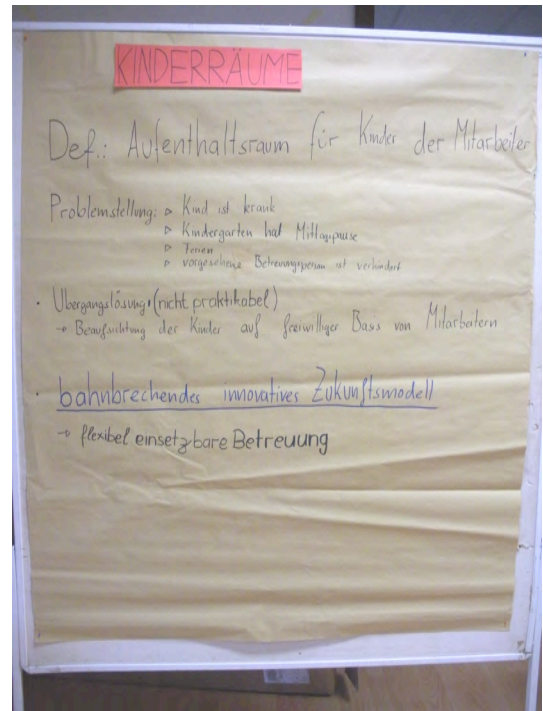 KINDERRÄUME
Def.: Aufenthaltsraum für Kinder der Mitarbeiter
Problemstellung: ▹ Kind ist krank
▹ Kindergarten hat Mittagspause
▹ Ferien
▹ vorgesehene Betreuungsperson ist verhindert
• Übergangslösung: (nicht praktikabel)
→ Beaufsichtung der Kinder auf freiwilliger Basis von Mitarbeitern
• bahnbrechendes innovatives Zukunftsmodell
→ flexibel einsetzbare Betreuung